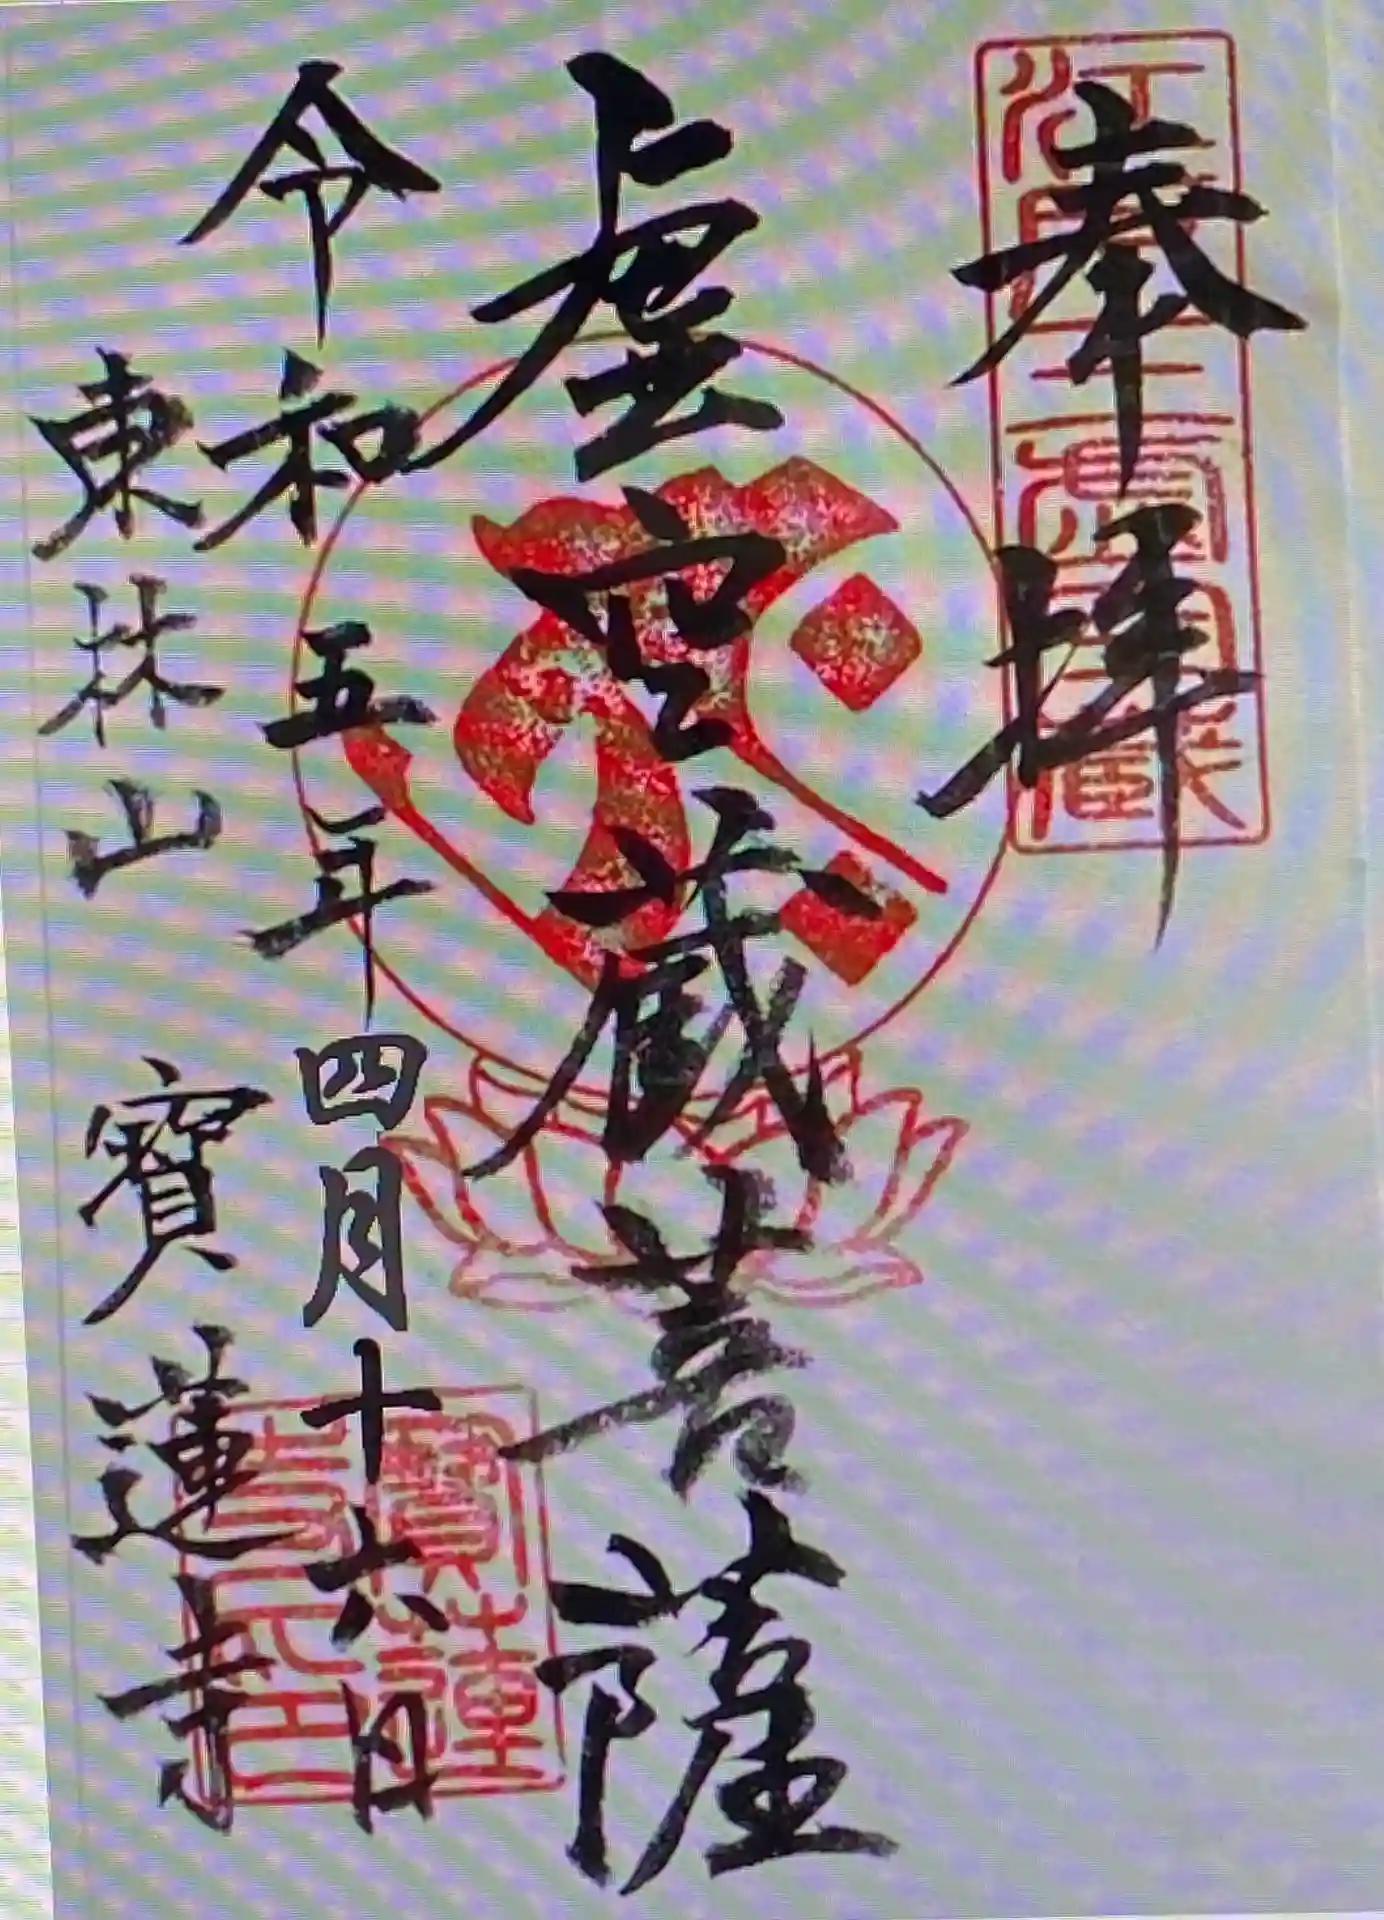 奉拝
虚空蔵菩薩
令和五年四月十六日
東林山 寳蓮寺
寳蓮寺印